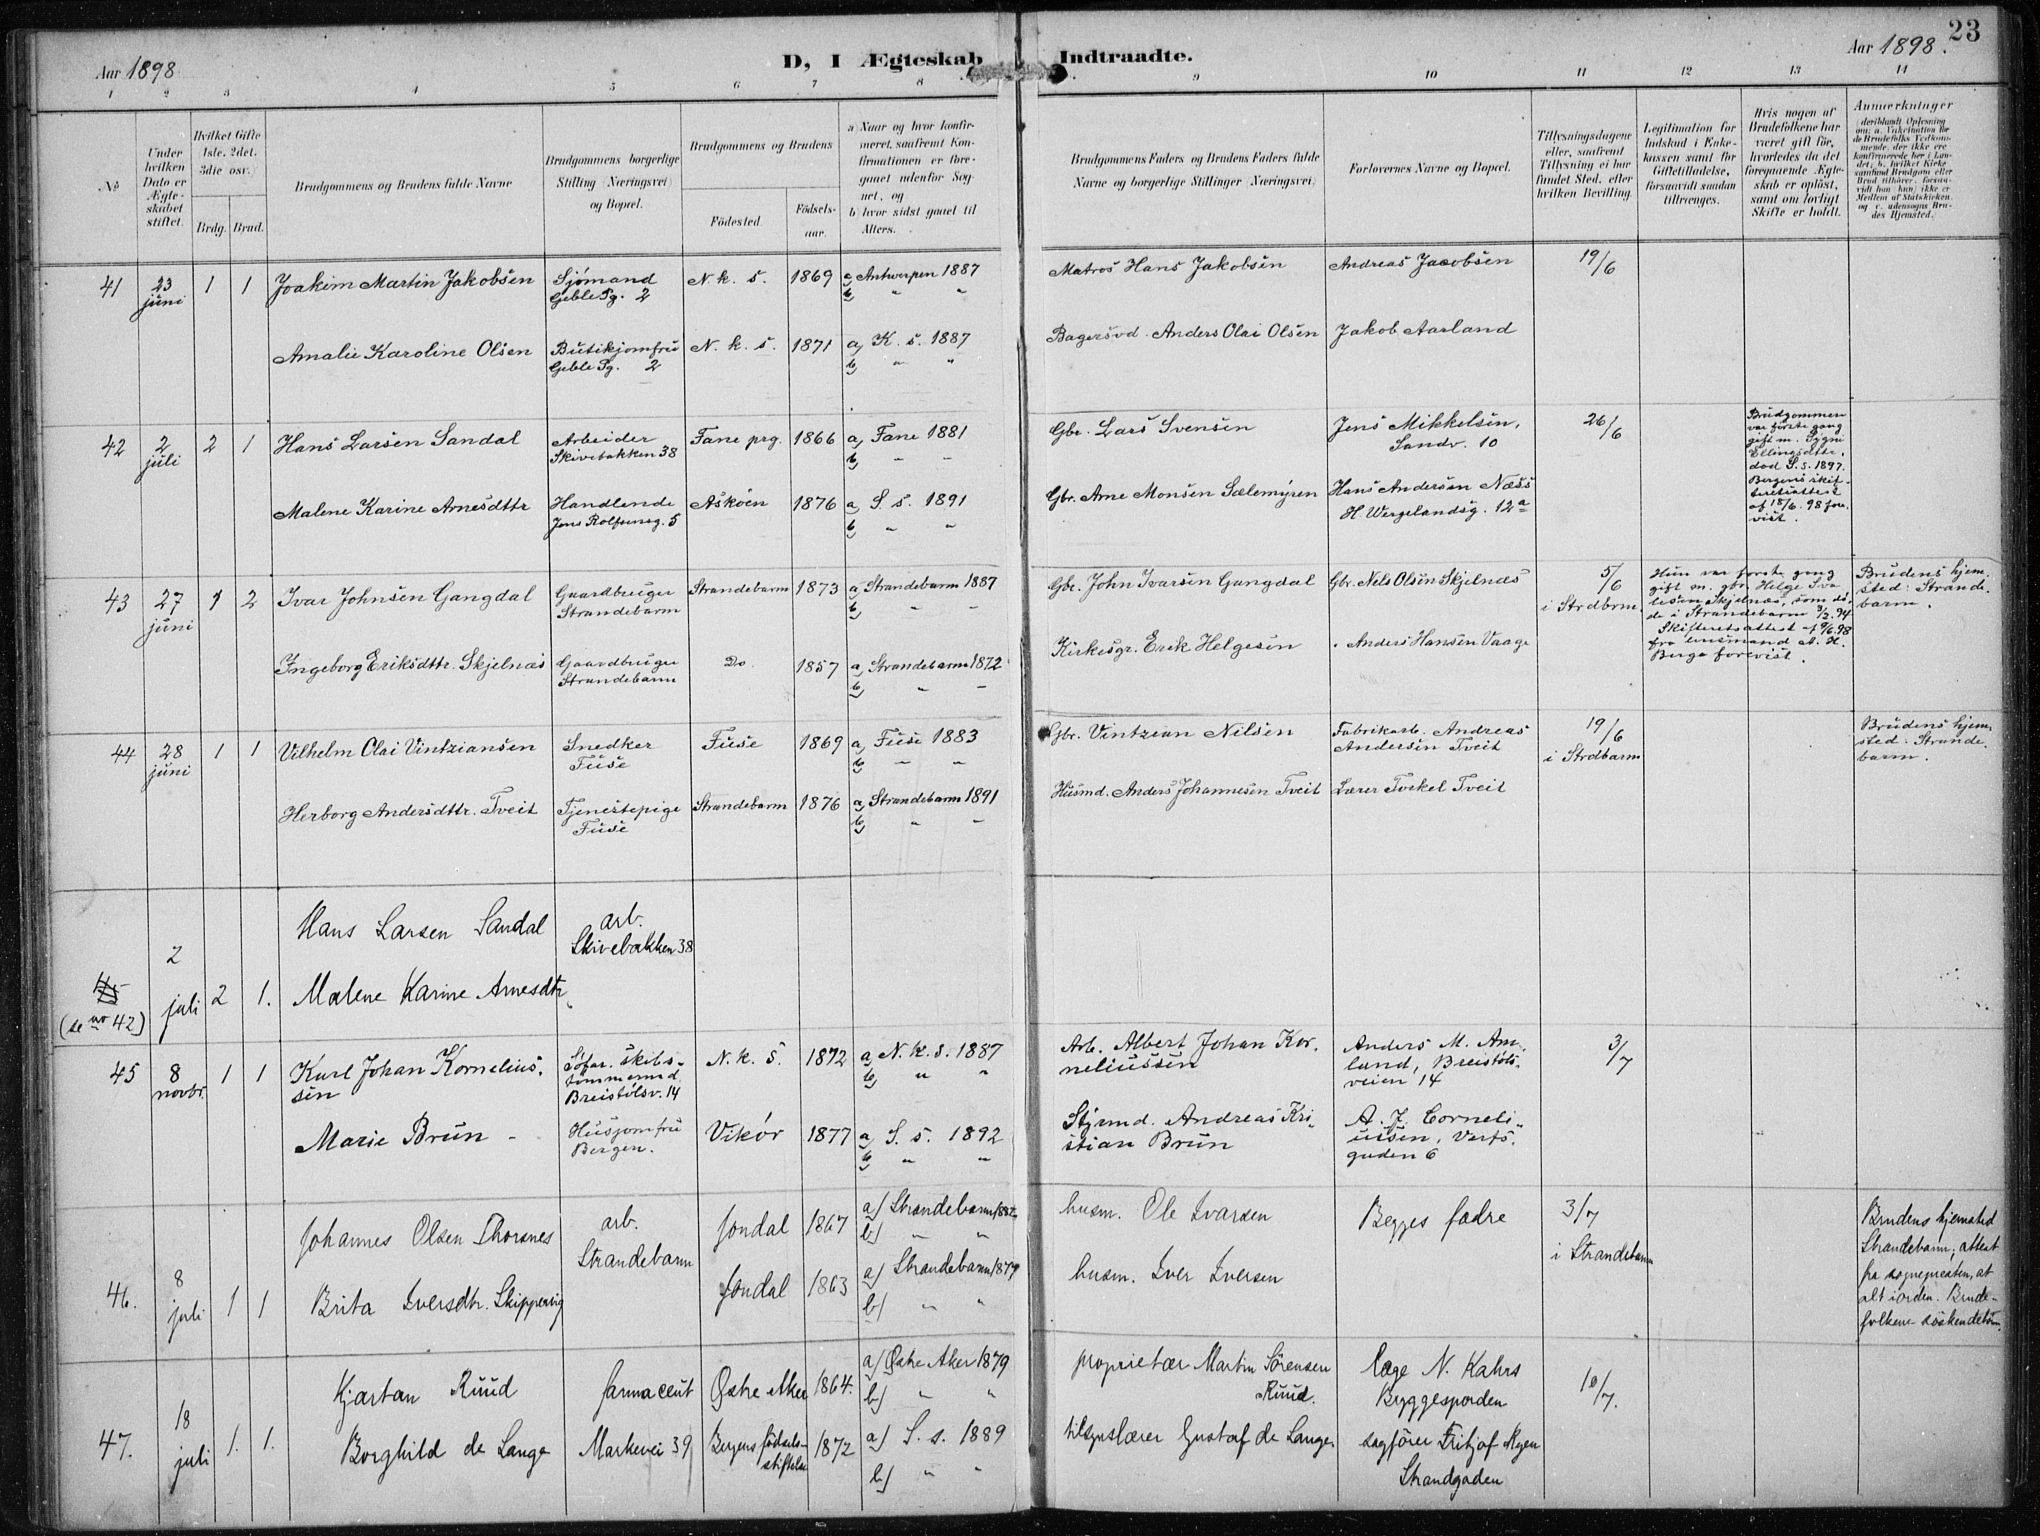 23
Aar 1898.
D, I Ægteskab Indtraadte.
Aar 1898.
1 2 3 4 5 6 7 8 9 10 11 12 13 14
No
Under hvilken Dato er Ægteskabet stiftet.
Hvilket Gifte 1ste, 2det, 3die osv.
Brdg. Brud.
Brudgommens og Brudens fulde Navne
Brudgommens borgerlige Stilling (Næringsvei) og Bopæl.
Brudgommens og Brudens
Fødested.
Fødsels-aar.
a) Naar og hvor konfir-
meret, saafremt Kon-
firmationen er fore-
gaaet udenfor Sog-
net, og
b) hvor sidst gaaet til
Alters.
Brudgommens Faders og Brudens Faders fulde
Navne og borgerlige Stillinger (Næringsvei)
Forlovernes Navne og Bopæl.
Tillysningsdagene
eller, saafremt
Tillysning ei har
fundet Sted, efter
hvilken Bevilling.
Legitimation for
Indskud i Enke-
kassen samt for
Giftetilladelse,
forsaavidt saadan
tiltrænges.
Hvis nogen af
Brudefolkene har
været gift før,
hvorledes da det
foregaaende Ægte-
skab er opløst,
samt om lovligt
Skifte er holdt.
Anmærkninger
(deriblandt Oplysning
om: a. Vakcination for
de Brudefolks Vedkom-
mende, der ikke ere
konfirmerede her i Lan-
det; b. hvilket Kirke-
samfund Brudgom eller
Brud tilhører, forsaa-
vidt han (hun) ikke er
Medlem af Statskirken,
og c. udensogns Bru-
des Hjemsted.)
41 23 juni 1 1 Joakim Martin Jakobsen Sjømand Geble Pg. 2 N. k. s. 1869 a) Antwerpen 1887 b) " " Matros Hans Jakobsen Andreas Jacobsen 19/6
Amalie Karoline Olsen Butikjomfru Geble Pg. 2 N. k. s. 1871 a) K. s. 1887 b) " " Bagersvd. Anders Olai Olsen Jakob Aarland
42 2 juli 2 1 Hans Larsen Sandal Arbeider Skivebakken 38 Fane prg. 1866 a) Fane 1881 b) " " Gbr. Lars Svensen Jens Mikkelsen, Sandv. 10 26/6
Brudgommen
var første gang
gift m. Sygni
Ellingsdttr.
død S. s. 1897.
Bergens skif-
teretsattest
af 18/6. 98 fore-
vist.
Malene Karine Arnesdttr Handlende Jens Rolfsensg. 5 Askøen 1876 a) S. s. 1891 b) " " Gbr. Arne Monsen Sælemyren Hans Andersen Næss H. Wergelandsg. 12a
43 27 juni 1 2 Ivar Johnsen Gangdal Gaardbruger Strandebarm Strandebarm 1873 a) Strandebarm 1887 b) " " Gbr. John Ivarsen Gangdal Gbr. Nels Olsen Skjelnæs 5/6 i Strdbrm
Hun var første gang
gift m. gbr. Helge Iva
lesen Skjelnæs, som dø-
de i Strandebarm 3/2.94
Skifteretsattest af 9/6.98
fra lensmand A. H.
Berge forevist.
Brudens hjem-
sted: Strande-
barm.
Ingeborg Eriksdttr. Skjelnæs Gaardbruger Strandebarm Do. 1857 a) Strandebarm 1872 b) " " Kirkesgr. Erik Helgesen " Anders Hansen Vaage
44 28 juni 1 1 Vilhelm Olai Vintziansen Snedker Fuse Fuse 1869 a) Fuse 1883 b) " " Gbr. Vintzian Nilsen Fabrikarb. Andreas Andersen Tveit 19/6 i Strdbarm
Brudens hjem-
sted: Strande-
barm.
Herborg Andersdttr. Tveit Tjenestepige Fuse Strandebarm 1876 a) Strandebarm 1891 b) " " Husmd. Anders Johannesen Tveit Lærer Torkel Tveit
45 (se no 42) 2 juli 2 1. Hans Larsen Sandal arb. Skivebakken 38
Malene Karine Arnesdtr.
45 8 novbr. 1 1 Karl Johan Kornelius-
sen Søfar. skibs-
tømmermd.
Breistølsv. 14 N. k. s. 1872 a) N. k. s. 1887 b) " " Arb. Albert Johan Kor-
neliussen Anders M. Am-
land, Breistøls-
veien 14 3/7
Marie Brun Husjomfru Bergen. Vikør 1877 a) S. s. 1892 b) " " Stjrmd. Andreas Kri-
stian Brun A. J. Corneli-
ussen, Verfts-
gaden 6
46. 8 juli 1 1 Johannes Olsen Thorsnes arb. Strandebarm Jondal 1867 a) Strandebarm 1882 b) " " husm. Ole Ivarsen Begges fædre 3/7 i Strandebarm
Brudens hjemsted
Strandebarm; attest
fra sognepresten, at
alt iorden. Brude-
folkene søskendebørn.
Brita Iversdtr. Skippervig Jondal 1863 a) Strandebarm 1879 b) " " husm. Iver Iversen
47. 18 juli 1. 1. Kjartan Ruud farmaceut Østre Aker 1864. a) Østre Aker 1879 b) " " proprietær Martin Sørensen Ruud. Læge N. Kahrs Bryggesporden 10/7.
Borghild de Lange Markevei 39 Bergens fødsels-
stiftelse 1872 a) S. s. 1889 b) " " tilsynslærer Gustaf de Lange. sagfører Fritjof Mgen Strandgaden